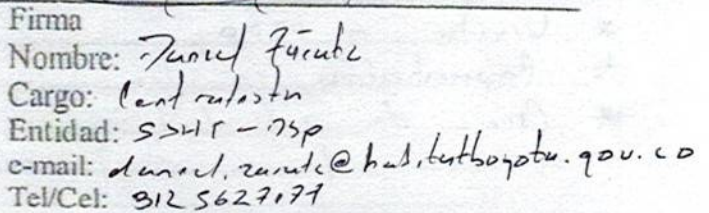 Firma
Nombre: Daniel Zárate
Cargo: Contratista
Entidad: SDHT -
e-mail: daniel.zarate@habitatbogota.gov.co
Tel/Cel: 312